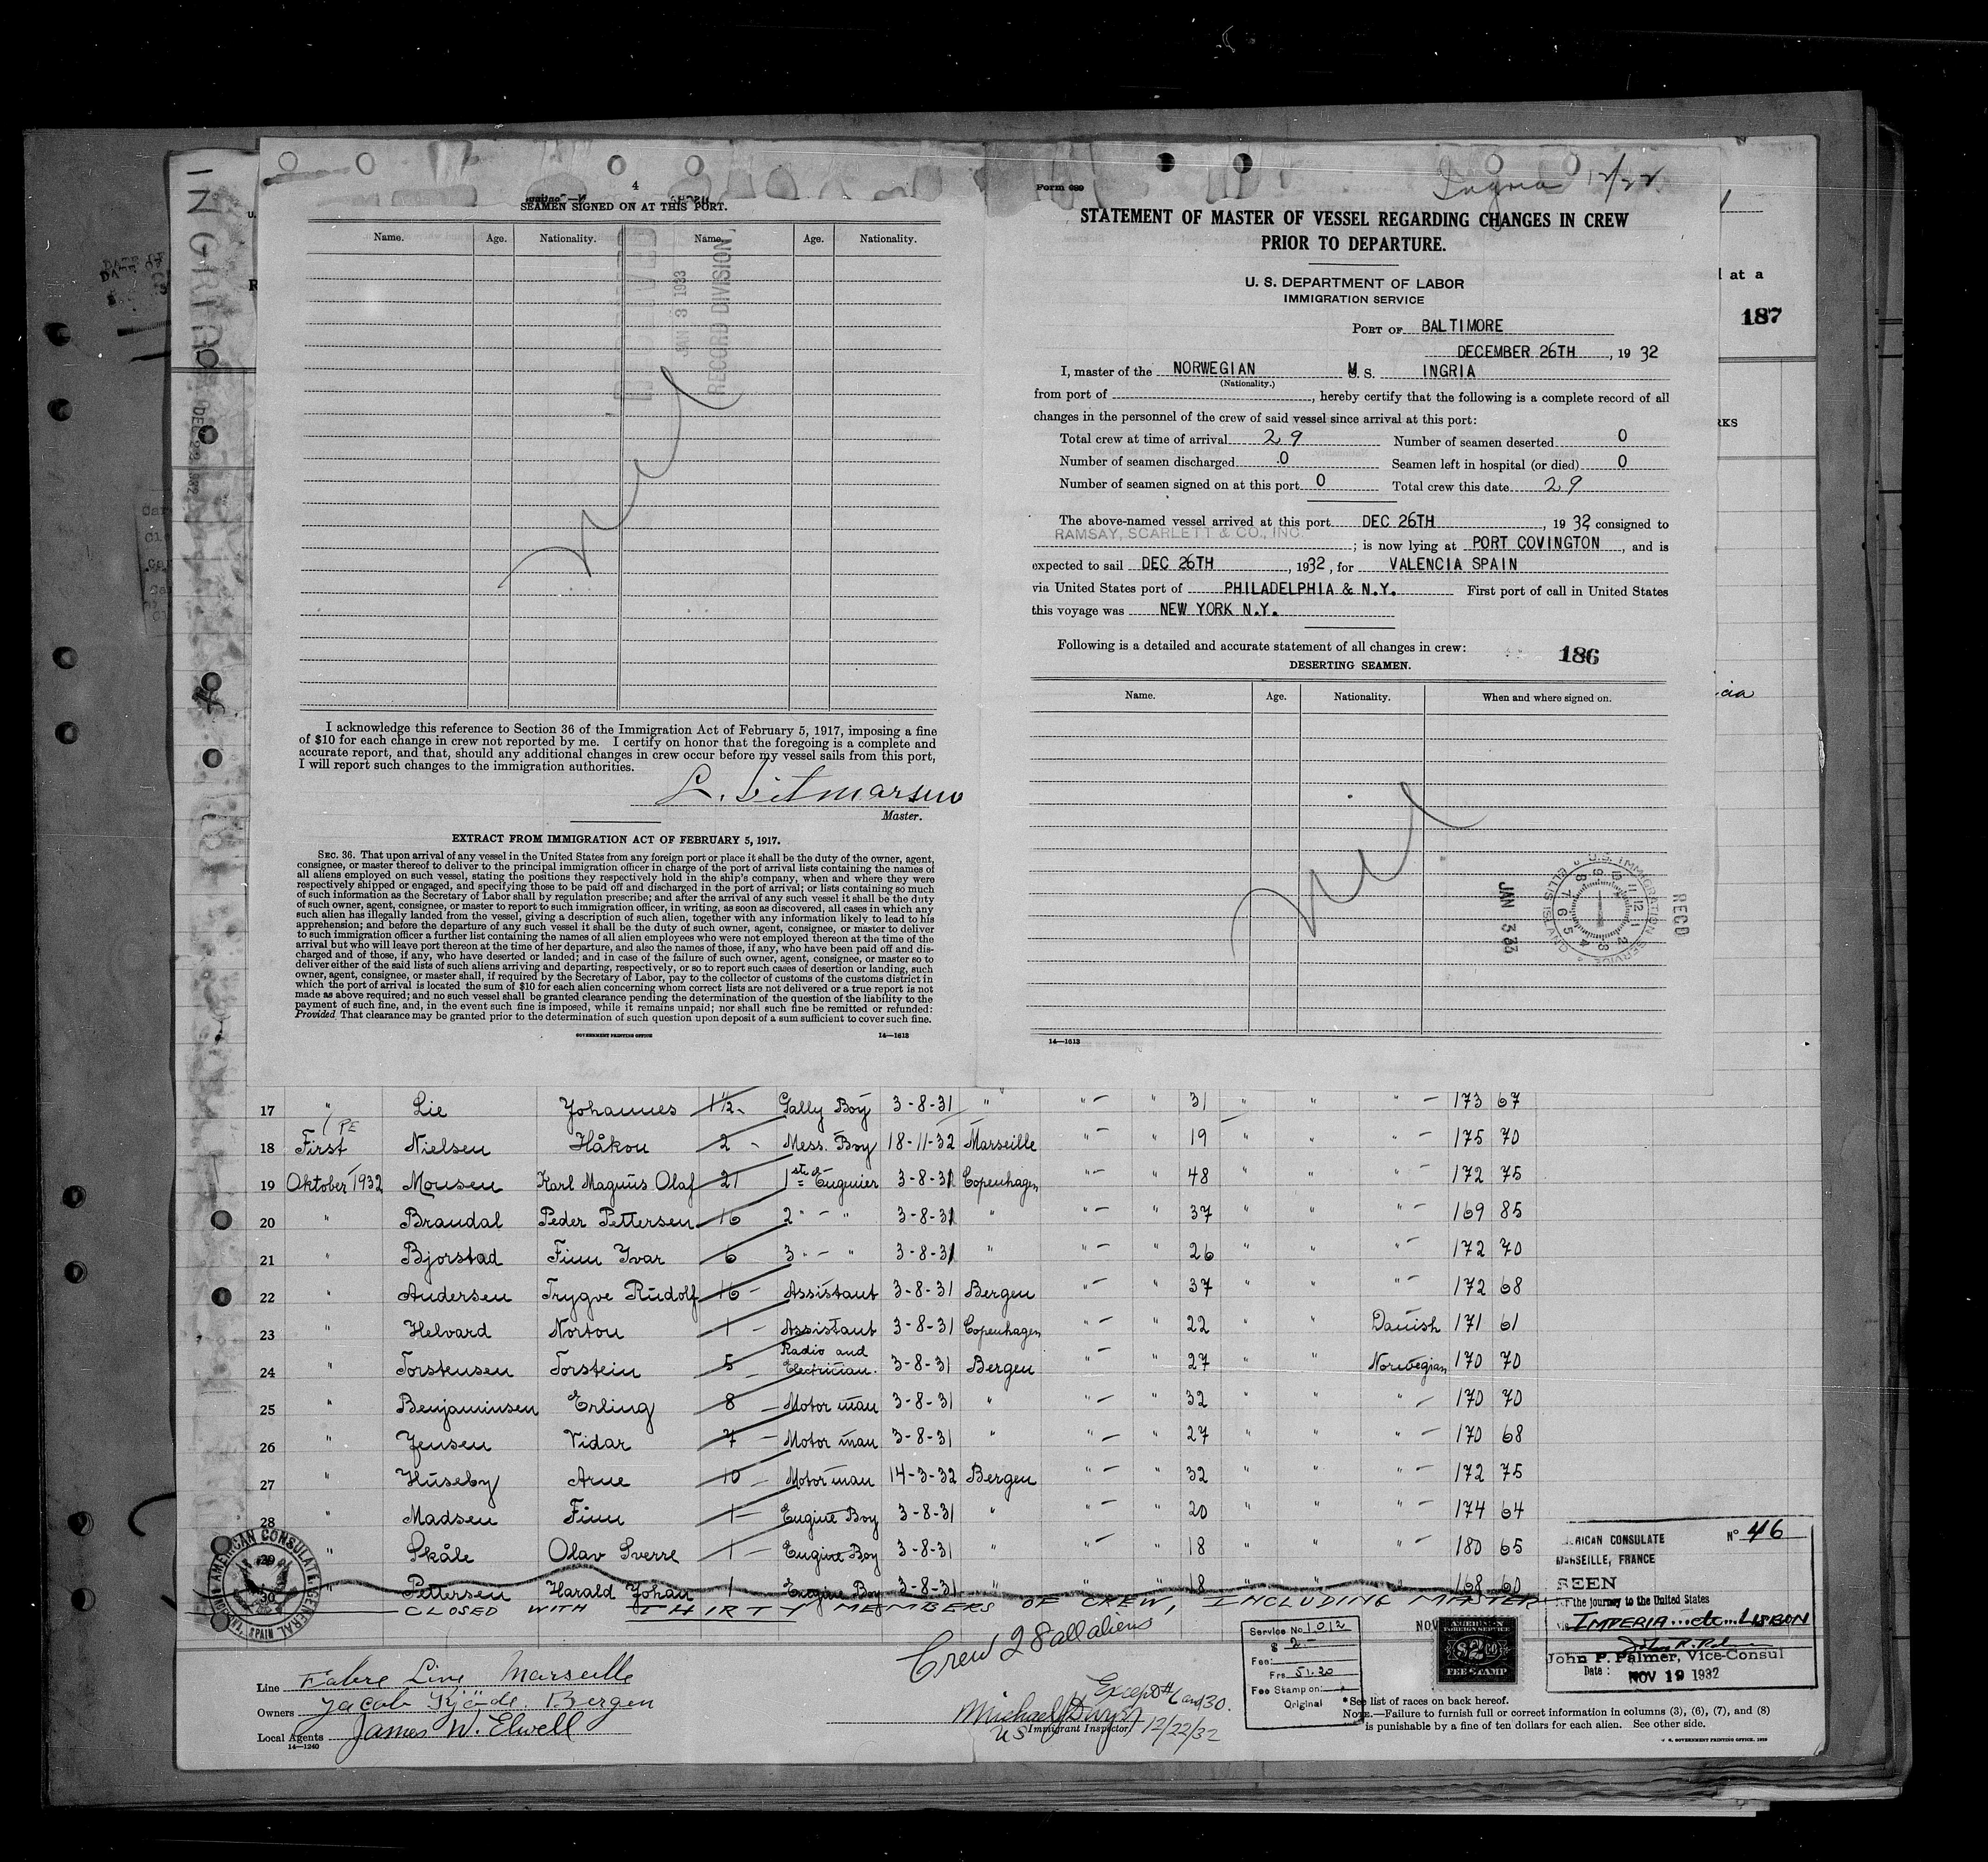 INGRIA
DEC 22 1932
4
SEAMEN SIGNED ON AT THIS PORT.
Name. Age. Nationality. Name. Age. Nationality.
JAN 3 1933
RECORD DIVISION
Nil
I acknowledge this reference to Section 36 of the Immigration Act of February 5, 1917, imposing a fine
of $10 for each change in crew not reported by me. I certify on honor that the foregoing is a complete and
accurate report, and that, should any additional changes in crew occur before my vessel sails from this port,
I will report such changes to the immigration authorities.
Master.
EXTRACT FROM IMMIGRATION ACT OF FEBRUARY 5, 1917.
SEC. 36. That upon arrival of any vessel in the United States from any foreign port or place it shall be the duty of the owner, agent,
consignee, or master thereof to deliver to the principal immigration officer in charge of the port of arrival lists containing the names of
all aliens employed on such vessel, stating the positions they respectively hold in the ship's company, when and where they were
respectively shipped or engaged, and specifying those to be paid off and discharged in the port of arrival; or lists containing so much
of such information as the Secretary of Labor shall by regulation prescribe; and after the arrival of any such vessel it shall be the duty
of such owner, agent, consignee, or master to report to such immigration officer, in writing, as soon as discovered, all cases in which any
such alien has illegally landed from the vessel, giving a description of such alien, together with any information likely to lead to his
apprehension; and before the departure of any such vessel it shall be the duty of such owner, agent, consignee, or master to deliver
to such immigration officer a further list containing the names of all alien employees who were not employed thereon at the time of the
arrival but who will leave port thereon at the time of her departure, and also the names of those, if any, who have been paid off and dis-
charged and of those, if any, who have deserted or landed; and in case of the failure of such owner, agent, consignee, or master so to
deliver either of the said lists of such aliens arriving and departing, respectively, or so to report such cases of desertion or landing, such
owner, agent, consignee, or master shall, if required by the Secretary of Labor, pay to the collector of customs of the customs district in
which the port of arrival is located the sum of $10 for each alien concerning whom correct lists are not delivered or a true report is not
made as above required; and no such vessel shall be granted clearance pending the determination of the question of the liability to the
payment of such fine, and, in the event such fine is imposed, while it remains unpaid; nor shall such fine be remitted or refunded:
Provided That clearance may be granted prior to the determination of such question upon deposit of a sum sufficient to cover such fine.
GOVERNMENT PRINTING OFFICE 14—1613
Form 689
Ingria 12/22
STATEMENT OF MASTER OF VESSEL REGARDING CHANGES IN CREW
PRIOR TO DEPARTURE.
U. S. DEPARTMENT OF LABOR
IMMIGRATION SERVICE
PORT OF BALTIMORE
DECEMBER 26TH, 1932
I, master of the NORWEGIAN M. S. INGRIA
(Nationality.)
from port of , hereby certify that the following is a complete record of all
changes in the personnel of the crew of said vessel since arrival at this port:
Total crew at time of arrival 29 Number of seamen deserted 0
Number of seamen discharged 0 Seamen left in hospital (or died) 0
Number of seamen signed on at this port 0 Total crew this date 29
The above-named vessel arrived at this port DEC 26TH, 1932 consigned to
RAMSAY, SCARLETT & CO., INC. ; is now lying at PORT COVINGTON, and is
expected to sail DEC 26TH, 1932, for VALENCIA SPAIN
via United States port of PHILADELPHIA & N.Y. First port of call in United States
this voyage was NEW YORK N.Y.
Following is a detailed and accurate statement of all changes in crew: 186
DESERTING SEAMEN.
Name. Age. Nationality. When and where signed on.
Nil
RECD
U.S. IMMIGRATION SERVICE ELLIS ISLAND
JAN 3 33
14—1613
at a
187
17 " Lie Johannes 1½ Gally Boy 3-8-31 " " " 31 " " " 173 67
18 First Nielsen Håkon 2 Mess. Boy 18-11-32 Marseille " " 19 " " " 175 70
19 Oktober 1932 Monsen Karl Magnus Olaf 21 1st Enginier 3-8-31 Copenhagen " " 48 " " " 172 75
20 " Brandal Peder Pettersen 16 2 " " 3-8-31 " " " 37 " " " 169 85
21 " Bjorstad Finn Yvar 6 3 " " 3-8-31 " " " 26 " " " 172 70
22 " Andersen Trygve Rudolf 16 Assistant 3-8-31 Bergen " " 37 " " " 172 68
23 " Helvard Norton 1 Assistant 3-8-31 Copenhagen " " 22 " " Danish 171 61
24 " Torstensen Torstein 5 Radio and Electrician. 3-8-31 Bergen " " 27 " " Norwegian 170 70
25 " Benjaminsen Erling 8 Motor man 3-8-31 " " " 32 " " " 170 70
26 " Jensen Vidar 7 Motor man 3-8-31 " " " 27 " " " 170 68
27 " Huseby Arne 10 Motor man 14-3-32 Bergen " " 32 " " " 172 75
28 " Madsen Finn 1 Engine Boy 3-8-31 " " " 20 " " " 174 64
29 " Skåle Olav Sverre 1 Engine Boy 3-8-31 " " " 18 " " " 180 65
30 " Pettersen Harald Johan 1 Engine Boy 3-8-31 " " " 18 " " " 168 60
CLOSED WITH THIRTY MEMBERS OF CREW, INCLUDING MASTER
AMERICAN CONSULATE GENERAL SPAIN
Crew 28 all aliens
Except #6 and 30.
US Immigrant Inspector 12/22/32
Line Fabre Line Marseille
Owners Jacob Kjöde. Bergen
Local Agents James W. Elwell
14—1240
Service No 1012
$ 2-
Fee:
Frs 51.20
Fee Stamp on:
Original
NOV
AMERICAN
FOREIGN SERVICE
$2.00
FEE STAMP
AMERICAN CONSULATE No 46
MARSEILLE, FRANCE
SEEN
For the journey to the United States
IMPERIA...etc...LISBON
John P. Palmer, Vice-Consul
Date: NOV 19 1932
*See list of races on back hereof.
NOTE.—Failure to furnish full or correct information in columns (3), (6), (7), and (8)
is punishable by a fine of ten dollars for each alien. See other side.
U. S. GOVERNMENT PRINTING OFFICE